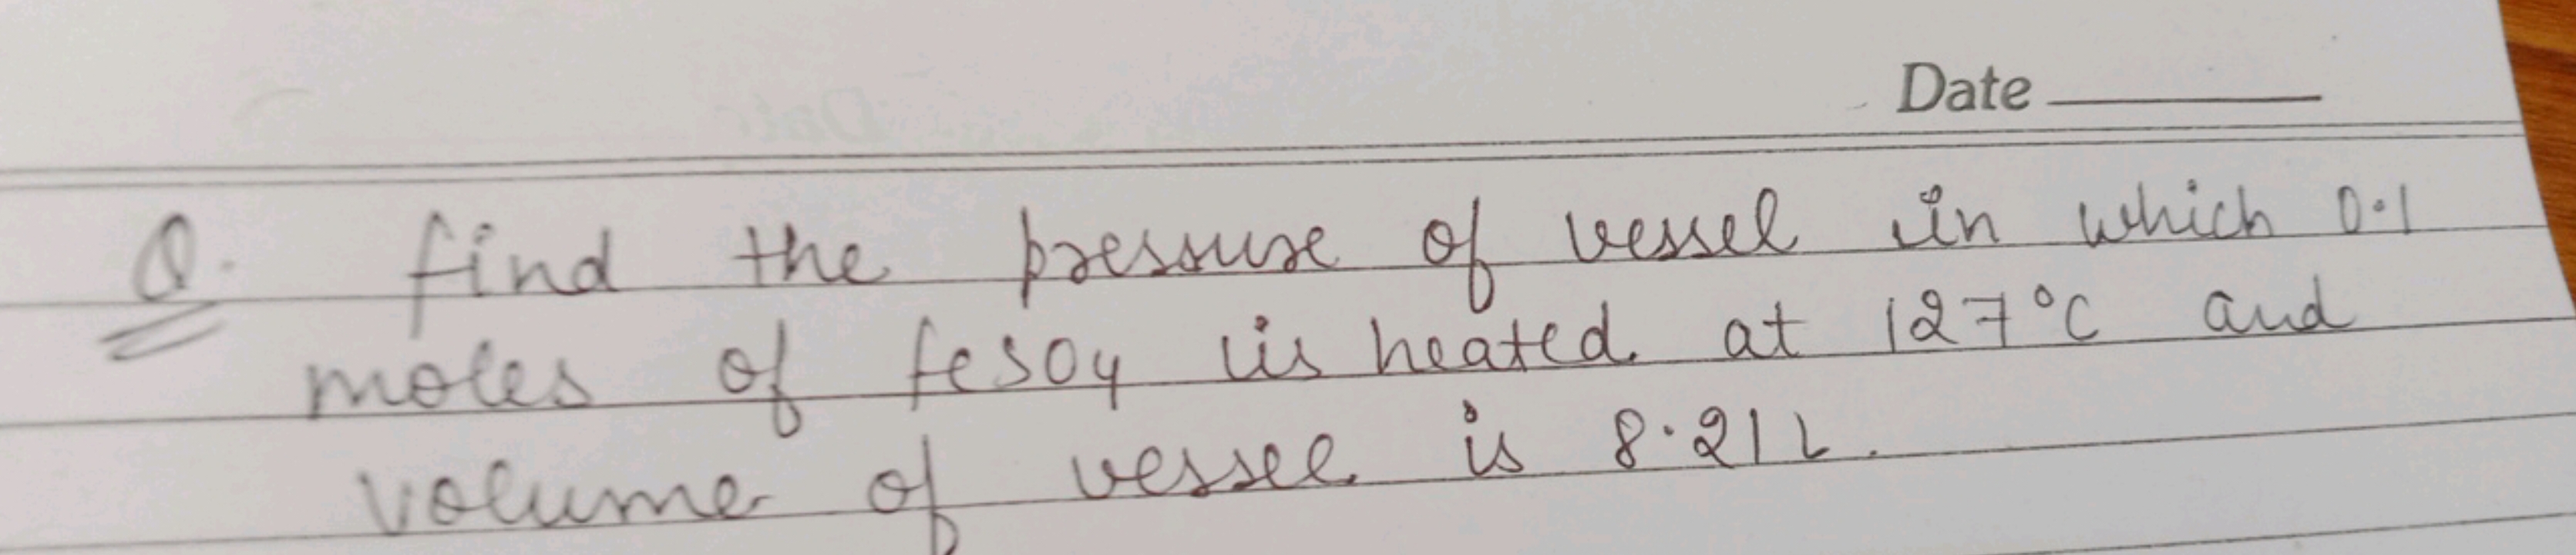 Date
Q. find the pressure of vessel in which 0.1
moles of feso4 is heated at 127°C and
volume of vessel is 8.21L.